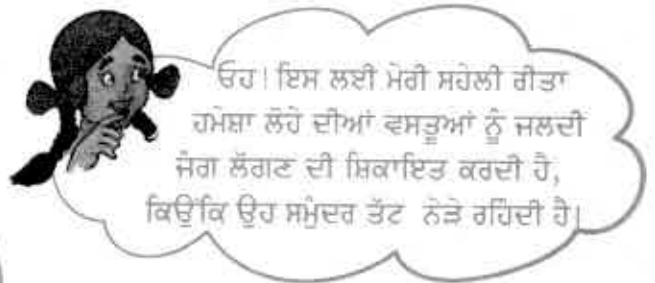 ਓਹ! ਇਸ ਲਈ ਮੇਰੀ ਸਹੇਲੀ ਰੀਤਾ
ਹਮੇਸ਼ਾ ਲੋਹੇ ਦੀਆਂ ਵਸਤੂਆਂ ਨੂੰ ਜਲਦੀ
ਜੰਗ ਲੱਗਣ ਦੀ ਸ਼ਿਕਾਇਤ ਕਰਦੀ ਹੈ,
ਕਿਉਂਕਿ ਉਹ ਸਮੁੰਦਰ ਤੱਟ ਨੇੜੇ ਰਹਿੰਦੀ ਹੈ।